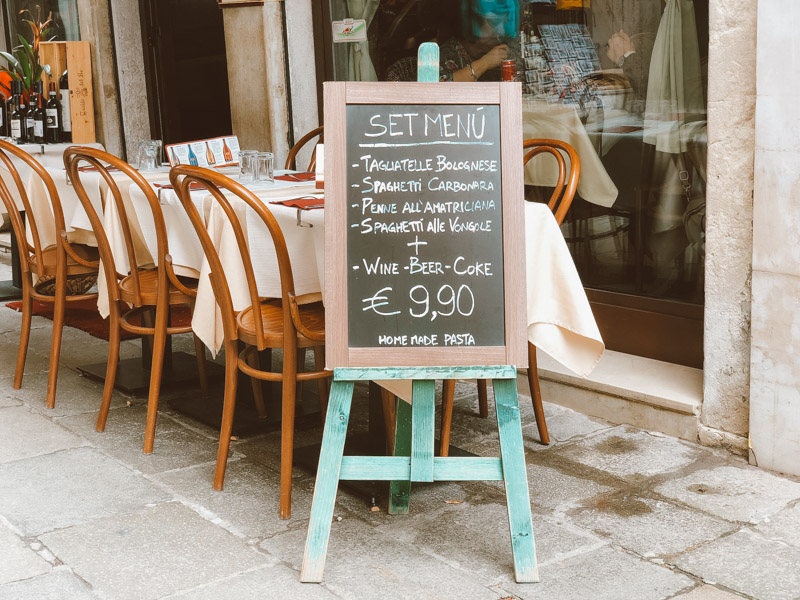 SET MENÚ
- TAGLIATELLE BOLOGNESE
- SPAGHETTI CARBONARA
- PENNE ALL'AMATRICIANA
- SPAGHETTI ALLE VONGOLE
+
- WINE - BEER - COKE
€ 9,90
HOME MADE PASTA